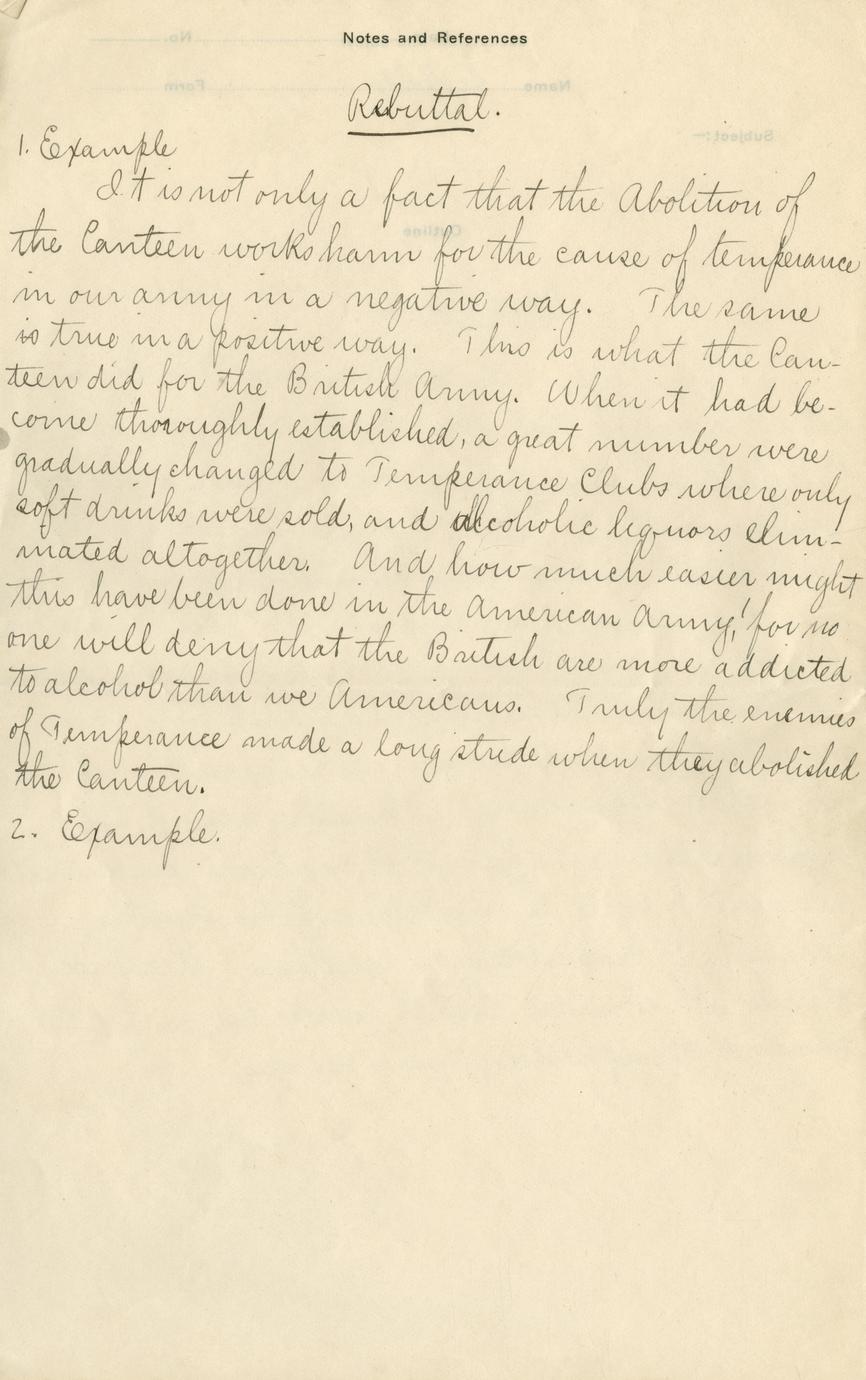 Notes and References
Rebuttal.
1. Example
It is not only a fact that the Abolition of
the Canteen works harm for the cause of temperance
in our army in a negative way. The same
is true in a positive way. This is what the Can-
teen did for the British Army. When it had be-
come thoroughly established, a great number were
gradually changed to Temperance Clubs where only
soft drinks were sold, and alcoholic liquors elim-
inated altogether. And how much easier might
this have been done in the American Army! for no
one will deny that the British are more addicted
to alcohol than we Americans. Truly the enemies
of Temperance made a long stride when they abolished
the Canteen.
2. Example.